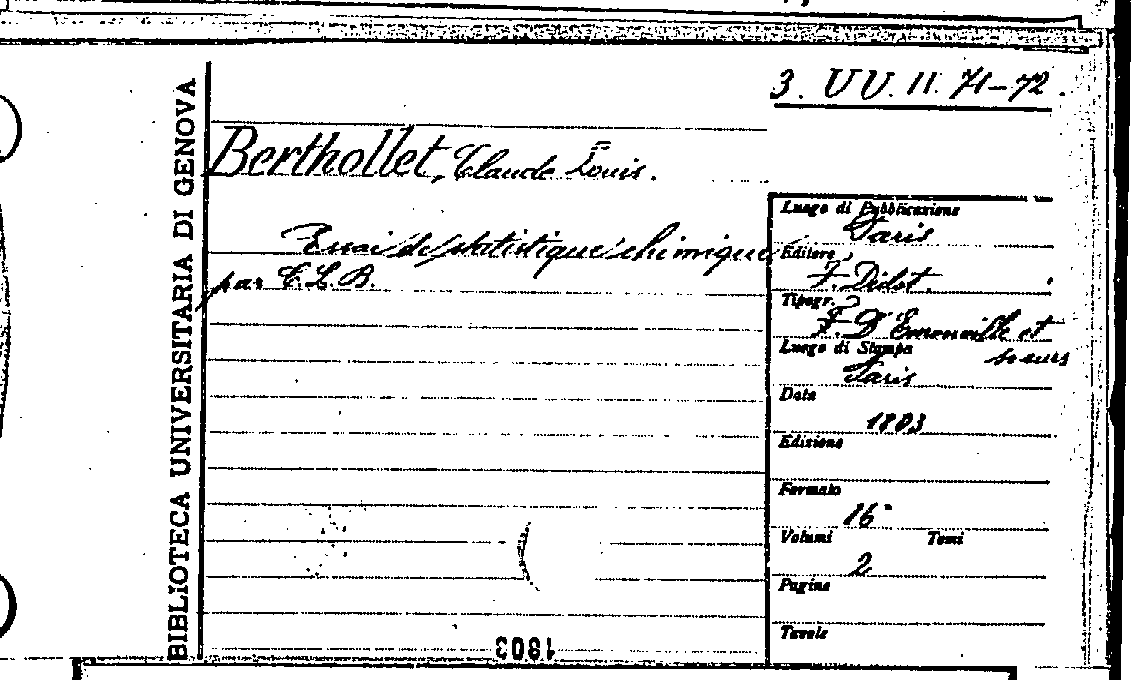 BIBLIOTECA UNIVERSITARIA DI GENOVA
3. UU. II. 71-72.
Berthollet, Claude Louis.
Essai de statistique chimique
par C. L. B.
Luogo di Pubblicazione
Paris
Editore
F. Didot.
Tipogr.
F. D'Emonville et
soeurs
Luogo di Stampa
Paris
Data
1803
Edizione
Formato
16°
Volumi Tomi
2
Pagine
Tavole
1803